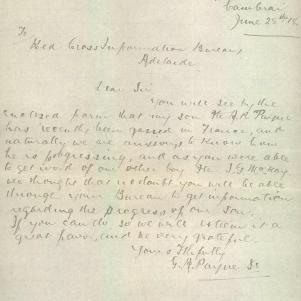 Cambrai
June 25th 18
To
Red Cross Information Bureau
Adelaide
Dear Sir
You will see by the
enclosed form that my son Pte A R Payne
has recently been gassed in France, and
naturally we are anxious to know how
he is progressing, and as you were able
to get word of our other boy Pte J. G. McKay
we thought that no doubt you will be able
through your Bureau to get information
regarding the progress of our Son.
If you can do so we will esteem it a
great favor, and be very grateful
Yours Ffully
G. A. Payne Sr